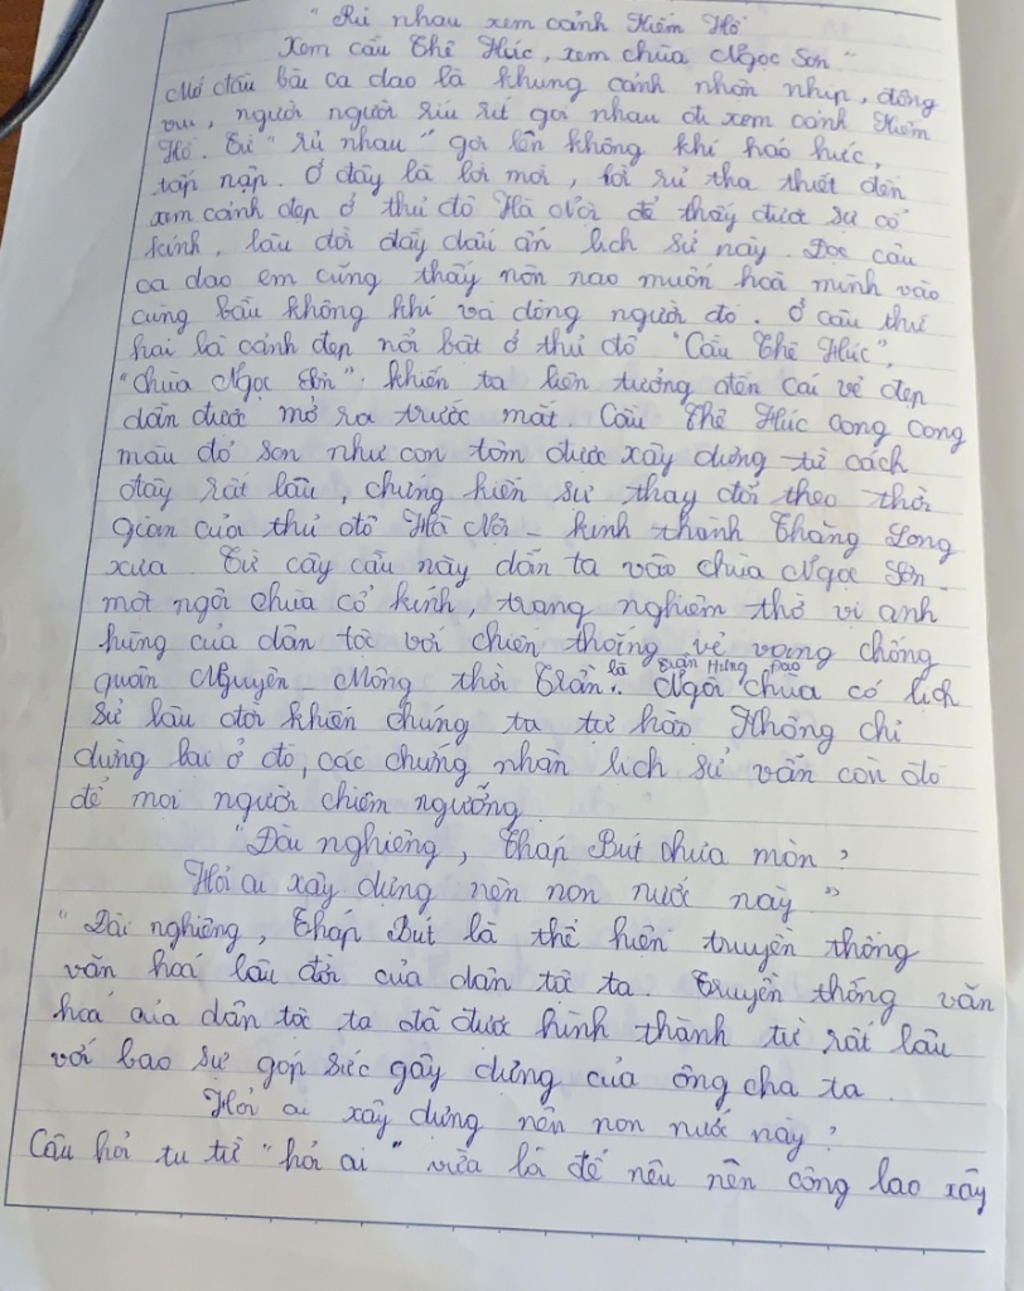 "Rủ nhau xem cảnh Kiếm Hồ
Xem cầu Thê Húc, xem chùa Ngọc Sơn"
Mở đầu bài ca dao là khung cảnh nhộn nhịp, đông
vui, người người ríu rít gọi nhau đi xem cảnh Kiếm
Hồ. Từ "rủ nhau" gợi lên không khí háo hức,
tấp nập. Ở đây là lời mời, lời rủ tha thiết đến
xem cảnh đẹp ở thủ đô Hà Nội để thấy được sự cổ
kính, lâu đời đầy dấu ấn lịch sử này. Đọc câu
ca dao em cũng thấy nôn nao muốn hoà mình vào
cùng bầu không khí và dòng người đó. Ở câu thứ
hai là cảnh đẹp nổi bật ở thủ đô "Cầu Thê Húc",
"chùa Ngọc Sơn". khiến ta liên tưởng đến cái vẻ đẹp
dần được mở ra trước mắt. Cầu Thê Húc cong cong
màu đỏ son như con tôm được xây dựng từ cách
đây rất lâu, chứng kiến sự thay đổi theo thời
gian của thủ đô Hà Nội - kinh thành Thăng Long
xưa. Từ cây cầu này dẫn ta vào chùa Ngọc Sơn
một ngôi chùa cổ kính, trang nghiêm thờ vị anh
hùng của dân tộc với chiến thắng vẻ vang chống
quân Nguyên - Mông thời Trần là Trần Hưng Đạo. Ngôi chùa có lịch
sử lâu đời khiến chúng ta tự hào. Không chỉ
dừng lại ở đó, các chứng nhân lịch sử vẫn còn đó
để mọi người chiêm ngưỡng.
"Đài nghiêng, Tháp Bút chưa mòn?
Hỏi ai xây dựng nên non nước này"
"Đài nghiêng, Tháp Bút là thể hiện truyền thống
văn hoá lâu đời của dân tộc ta. Truyền thống văn
hoá của dân tộc ta đã được hình thành từ rất lâu
với bao sự góp sức gây dựng của ông cha ta.
Hỏi ai xây dựng nên non nước này?
Câu hỏi tu từ "hỏi ai" vừa là để nêu nên công lao xây